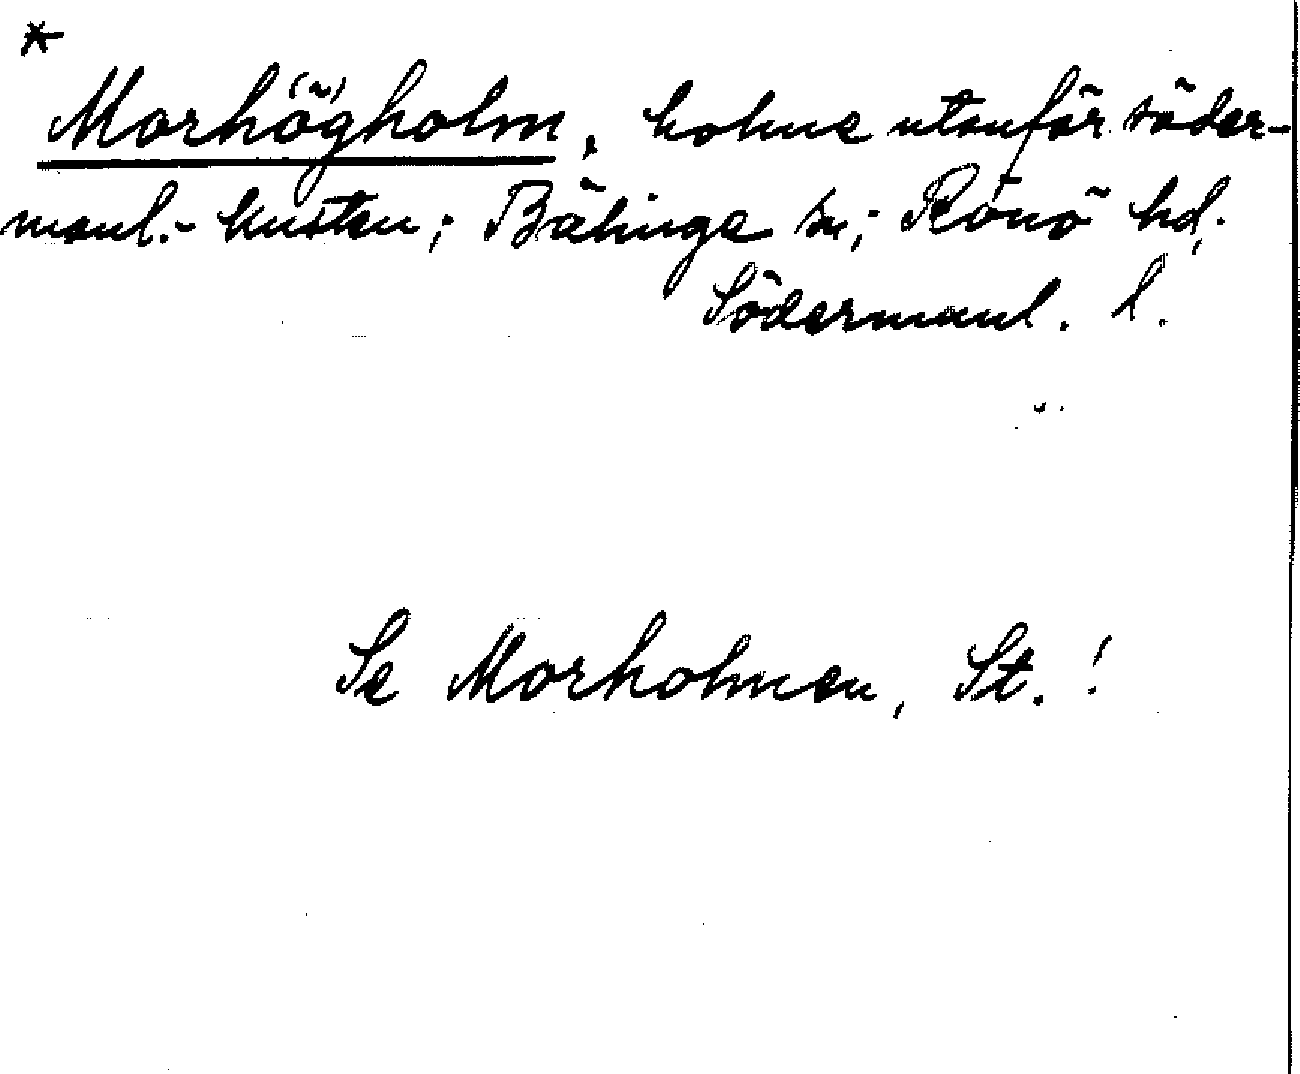 *
Morhögholm, holme utanför söder-
manl.-kusten; Bälinge sn; Rönö hd;
Södermanl. l.
Se Morholmen, St. !